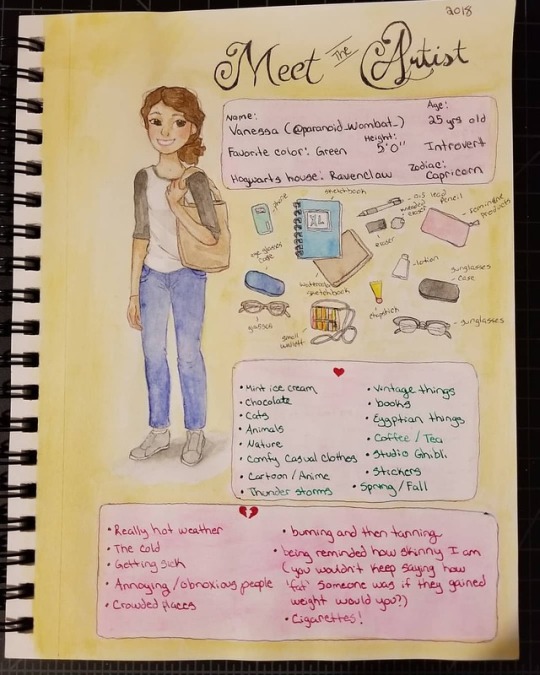 2018
Meet The Artist
Name: Age:
Vanessa (@paranoid_wombat_) 25 yrs old
Height:
Favorite color: Green 5'0" Introvert
Hogwarts house: Ravenclaw Zodiac: Capricorn
phone
sketchbook
XL
0.5 lead pencil
kneaded eraser
eraser
feminine products
eyeglasses case
lotion
sunglasses case
watercolor sketchbook
chapstick
glasses
small wallet
sunglasses
• Mint ice cream
• Chocolate
• Cats
• Animals
• Nature
• Comfy Casual Clothes
• Cartoon / Anime
• Thunder storms
• Vintage things
• books
• Egyptian things
• Coffee / Tea
• Studio Ghibli
• Stickers
• Spring / Fall
• Really hot weather
• The cold
• Getting sick
• Annoying / obnoxious people
• Crowded places
• burning and then tanning
• being reminded how skinny I am
(you wouldn't keep saying how
'fat' someone was if they gained
weight would you?)
• Cigarettes!